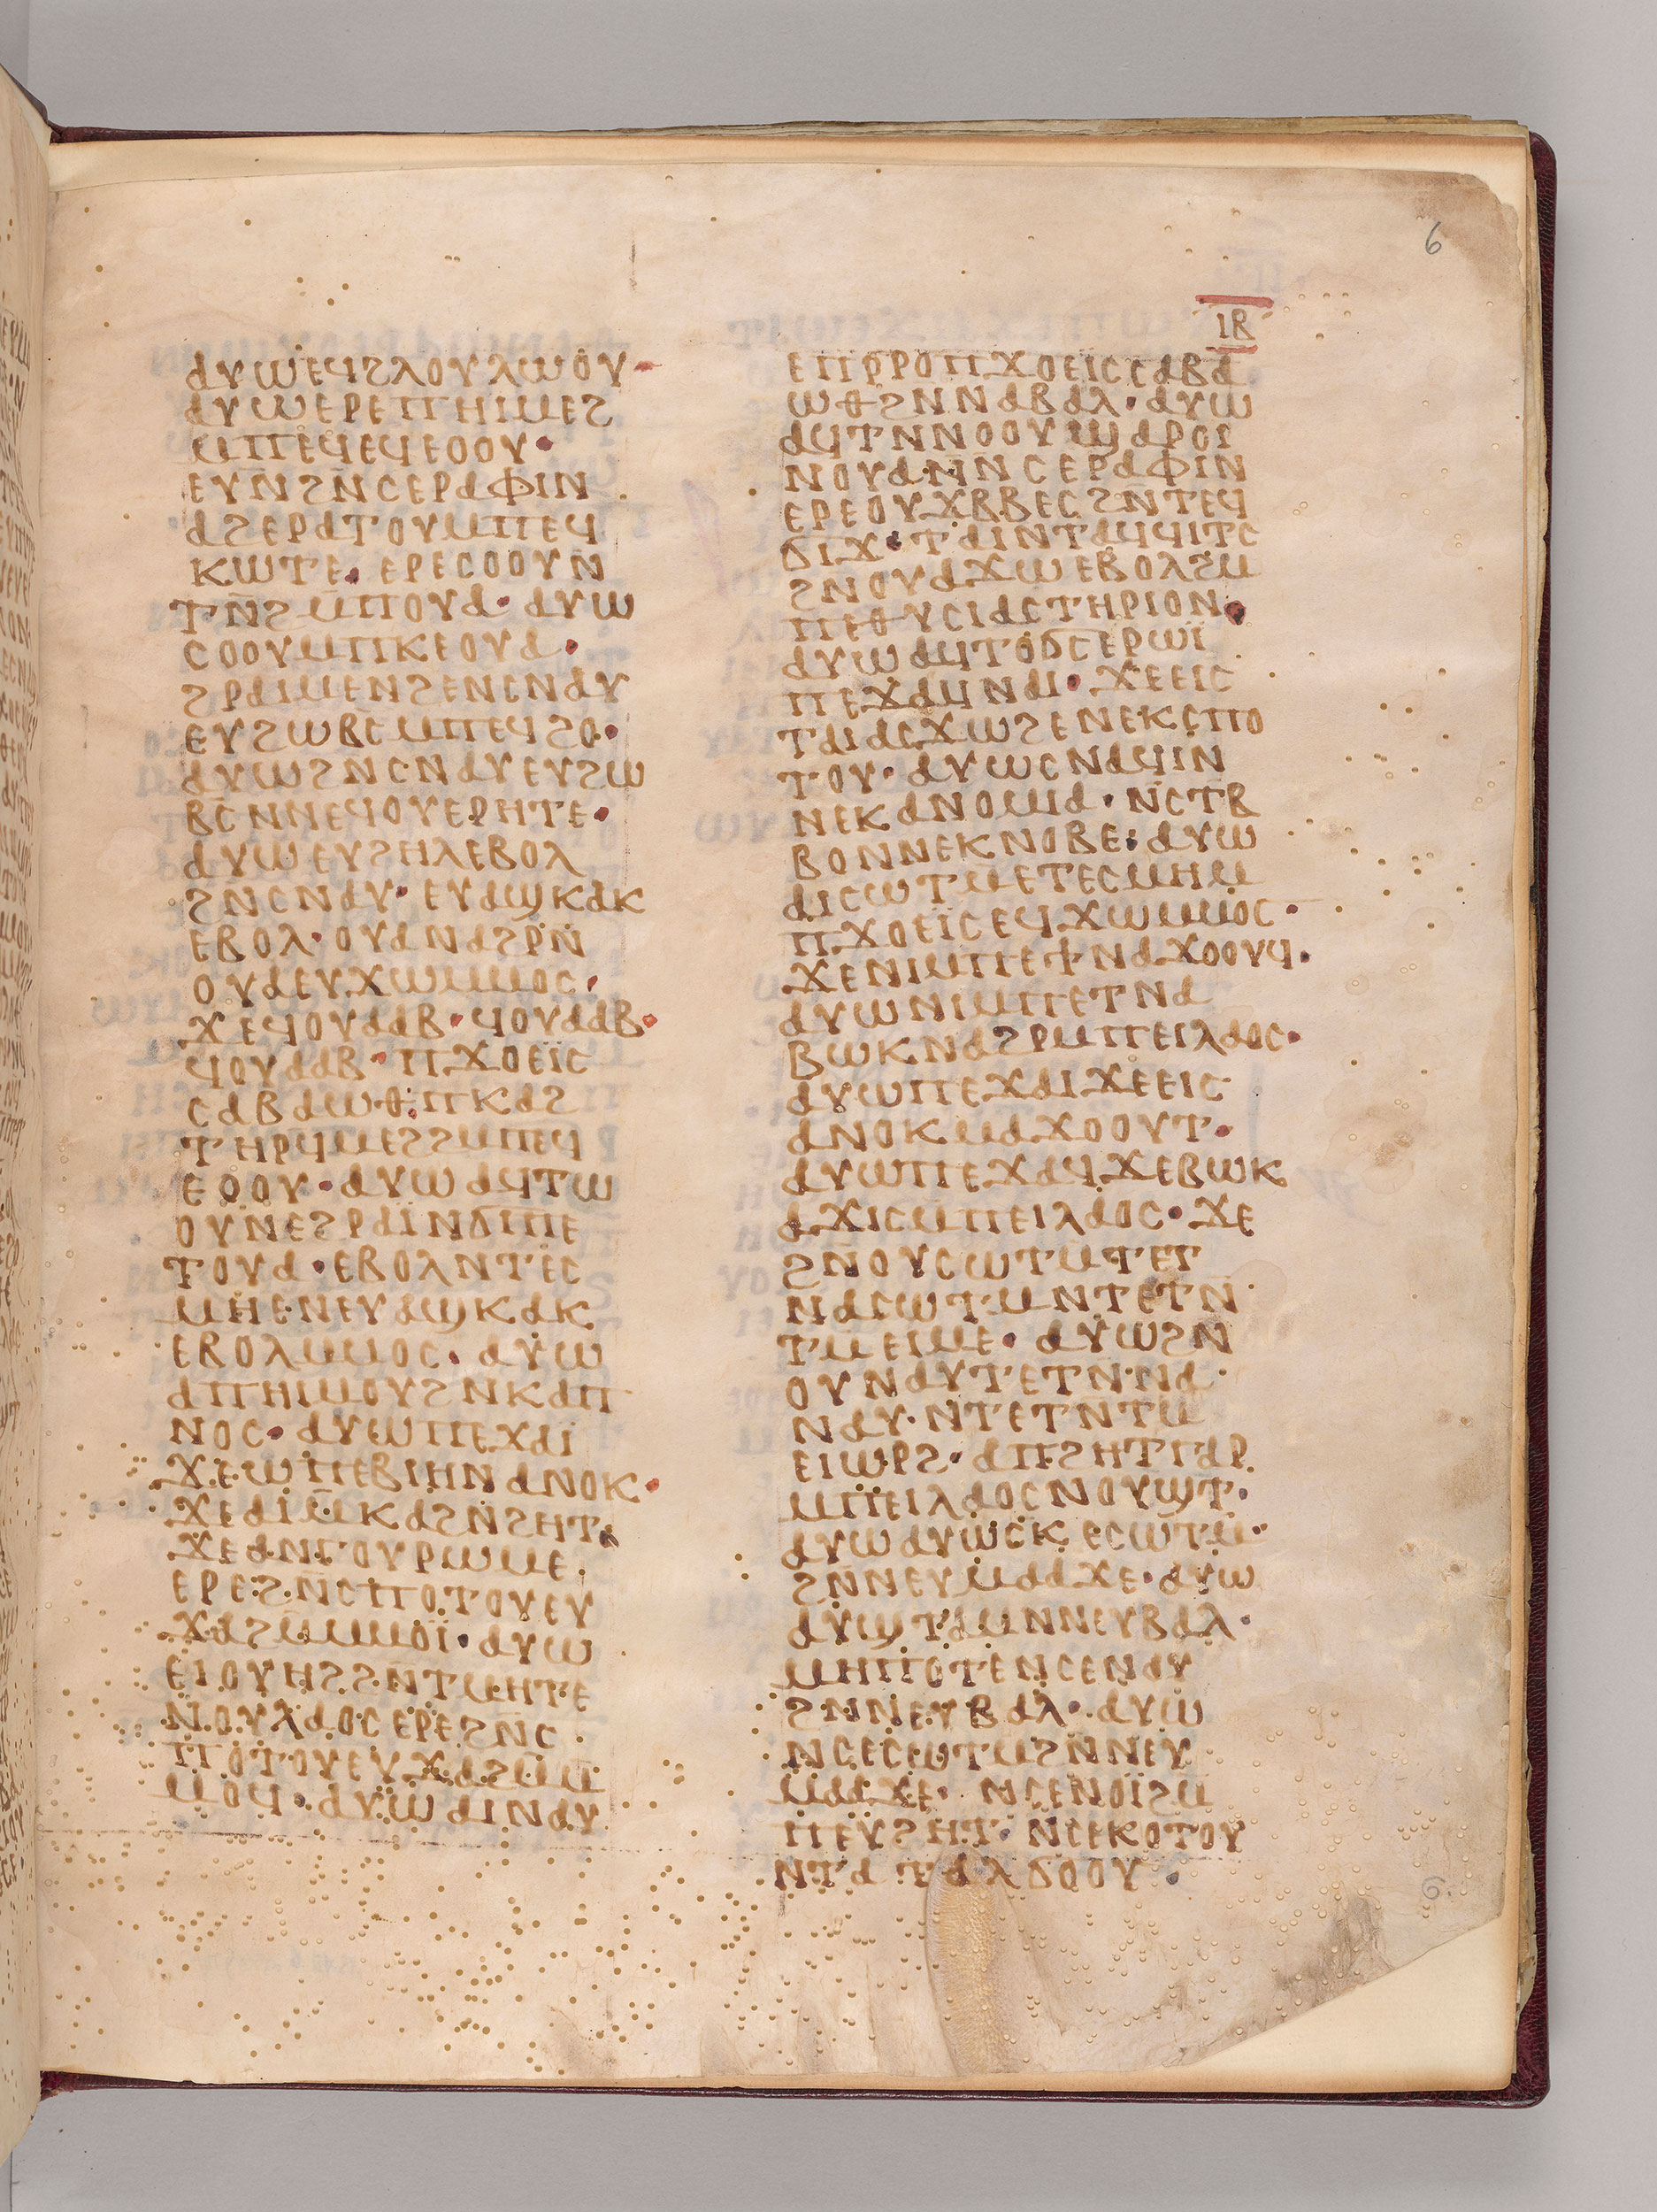 6
ⲓⲃ
ⲁⲩⲱⲉϥϩⲗⲟⲩⲗⲱⲟⲩ
ⲁⲩⲱⲉⲣⲉⲡⲏⲓⲙⲉϩ
ⲙⲡⲉϥⲉϥⲉⲟⲟⲩ·
ⲉⲩⲛϩⲛ̅ⲥⲉⲣⲁⲫⲓⲛ
ⲁϩⲉⲣⲁⲧⲟⲩⲙⲡⲉϥ
ⲕⲱⲧⲉ· ⲉⲣⲉⲥⲟⲟⲩⲛ
ⲧⲛ̅ϩⲙ̅ⲡⲟⲩⲁ· ⲁⲩⲱ
ⲥⲟⲟⲩⲙⲡⲕⲉⲟⲩⲁ·
ϩⲣⲁⲓⲙⲉⲛϩⲉⲛⲥⲛⲁⲩ
ⲉⲩϩⲱⲃⲥⲙⲡⲉϥϩⲟ·
ⲁⲩⲱϩⲛⲥⲛⲁⲩⲉⲩϩⲱ
ⲃⲥⲛⲛⲉϥⲟⲩⲉⲣⲏⲧⲉ·
ⲁⲩⲱⲉⲩϩⲏⲗⲉⲃⲟⲗ
ϩⲛⲥⲛⲁⲩ· ⲉⲩⲁϣⲕⲁⲕ
ⲉⲃⲟⲗ· ⲟⲩⲁⲛⲁϩⲣⲛ̅
ⲟⲩⲁⲉⲩϫⲱⲙⲙⲟⲥ·
ϫⲉϥⲟⲩⲁⲁⲃ· ϥⲟⲩⲁⲁⲃ·
ϥⲟⲩⲁⲁⲃ· ⲡϫⲟⲉⲓ̈ⲥ
ⲥⲁⲃⲁⲱⲑ· ⲡⲕⲁϩ
ⲧⲏⲣϥⲙⲉϩϩⲙⲡⲉϥ
ⲉⲟⲟⲩ· ⲁⲩⲱⲁϥⲧⲱ
ⲟⲩⲛⲉϩⲣⲁⲓ̈ⲛϭⲓⲡⲉ
ⲧⲟⲩⲁ· ⲉⲃⲟⲗⲛⲧⲉⲥ
ⲙⲏⲉⲛⲉⲩⲁϣⲕⲁⲕ
ⲉⲃⲟⲗⲙⲙⲟⲥ· ⲁⲩⲱ
ⲁⲡⲏⲓⲙⲟⲩϩⲛⲕⲁⲡ
ⲛⲟⲥ· ⲁⲩⲱⲡⲉϫⲁⲓ̈
ϫⲉⲱⲡⲉⲃⲓⲏⲛⲁⲛⲟⲕ·
ϫⲉⲁⲓⲙ̅ⲕⲁϩⲛ̅ϩⲏⲧ·
ϫⲉⲁⲛⲅⲟⲩⲣⲱⲙⲉ·
ⲉⲣⲉϩⲛ̅ⲥⲡⲟⲧⲟⲩⲉⲩ
ϫⲁϩⲙⲙⲙⲟⲓ̈· ⲁⲩⲱ
ⲉⲓⲟⲩⲏϩϩⲛⲧⲙⲏⲧⲉ
ⲛⲟⲩⲗⲁⲟⲥⲉⲣⲉϩⲛⲥ
ⲡⲟⲧⲟⲩⲉⲩϫⲁϩⲙⲙ
ⲙⲟϥ· ⲁⲩⲱⲁⲓⲛⲁⲩ
ⲉⲡⲣ̅ⲣⲟⲡϫⲟⲉⲓ̈ⲥⲥⲁⲃⲁ
ⲱⲑϩⲛⲛⲁⲃⲁⲗ· ⲁⲩⲱ
ⲁϥⲧⲛⲛⲟⲟⲩϣⲁⲣⲟⲓ
ⲛⲟⲩⲁⲛⲛ̅ⲥⲉⲣⲁⲫⲓⲛ
ⲉⲣⲉⲟⲩϫⲃⲃⲉⲥϩⲛ̅ⲧⲉϥ
ϭⲓϫ· ⲧⲁⲓⲛⲧⲁϥϥⲓⲧⲥ
ϩⲛⲟⲩⲁϫⲱⲉⲃⲟⲗϩⲙ
ⲡⲉⲑⲩⲥⲓⲁⲥⲧⲏⲣⲓⲟⲛ·
ⲁⲩⲱⲁϥⲧⲟϭⲥⲉⲣⲱⲓ̈
ⲡⲉϫⲁϥⲛⲁⲓ· ϫⲉⲉⲓⲥ
ⲧⲁⲓⲁⲥϫⲱϩⲉⲛⲉⲕⲥⲡⲟ
ⲧⲟⲩ· ⲁⲩⲱⲥⲛⲁϥⲓⲛ
ⲛⲉⲕⲁⲛⲟⲙⲓⲁ· ⲛ̅ⲥⲧⲃ
ⲃⲟⲛⲛⲉⲕⲛⲟⲃⲉ: ⲁⲩⲱ
ⲁⲓⲥⲱⲧⲙⲉⲧⲉⲥⲙⲏⲙ
ⲡϫⲟⲉⲓ̈ⲥⲉϥϫⲱⲙⲙⲟⲥ·
ϫⲉⲛⲓⲙⲡⲉϯⲛⲁϫⲟⲟⲩϥ·
ⲁⲩⲱⲛⲓⲙⲡⲉⲧⲛⲁ
ⲃⲱⲕⲛⲁϩⲣⲙⲡⲉⲓⲗⲁⲟⲥ·
ⲁⲩⲱⲡⲉϫⲁⲓϫⲉⲉⲓⲥ
ⲁⲛⲟⲕⲙⲁϫⲟⲟⲩⲧ·
ⲁⲩⲱⲡⲉϫⲁϥϫⲉⲃⲱⲕ
ⲁϫⲓⲥⲙⲡⲉⲓⲗⲁⲟⲥ· ϫⲉ
ϩⲛ̅ⲟⲩⲥⲱⲧⲙⲧⲉⲧ
ⲛⲁⲥⲱⲧⲙⲛⲧⲉⲧⲛ
ⲧⲙⲉⲓⲙⲉ· ⲁⲩⲱϩⲛ
ⲟⲩⲛⲁⲩⲧⲉⲧⲛⲛⲁ
ⲛⲁⲩ· ⲛⲧⲉⲧⲛⲧⲙ
ⲉⲓⲱⲣϩ· ⲁⲡϩⲏⲧⲅⲁⲣ
ⲙⲡⲉⲓⲗⲁⲟⲥⲛⲟⲩϣⲧ·
ⲁⲩⲱⲁⲩⲱⲥⲕⲉⲥⲱⲧⲙ·
ϩⲛⲛⲉⲩⲙⲁⲁϫⲉ· ⲁⲩⲱ
ⲁⲩϣⲧⲁⲙⲛⲛⲉⲩⲃⲁⲗ·
ⲙⲏⲡⲟⲧⲉⲛⲥⲉⲛⲁⲩ
ϩⲛⲛⲉⲩⲃⲁⲗ· ⲁⲩⲱ
ⲛⲥⲉⲥⲱⲧⲙϩⲛⲛⲉⲩ
ⲙⲁⲁϫⲉ· ⲛⲥⲉⲛⲟⲓ̈ϩⲙ
ⲡⲉⲩϩⲏⲧ· ⲛ̅ⲥⲉⲕⲟⲧⲟⲩ
ⲛⲧⲁⲧⲁⲗϭⲟⲟⲩ·
6